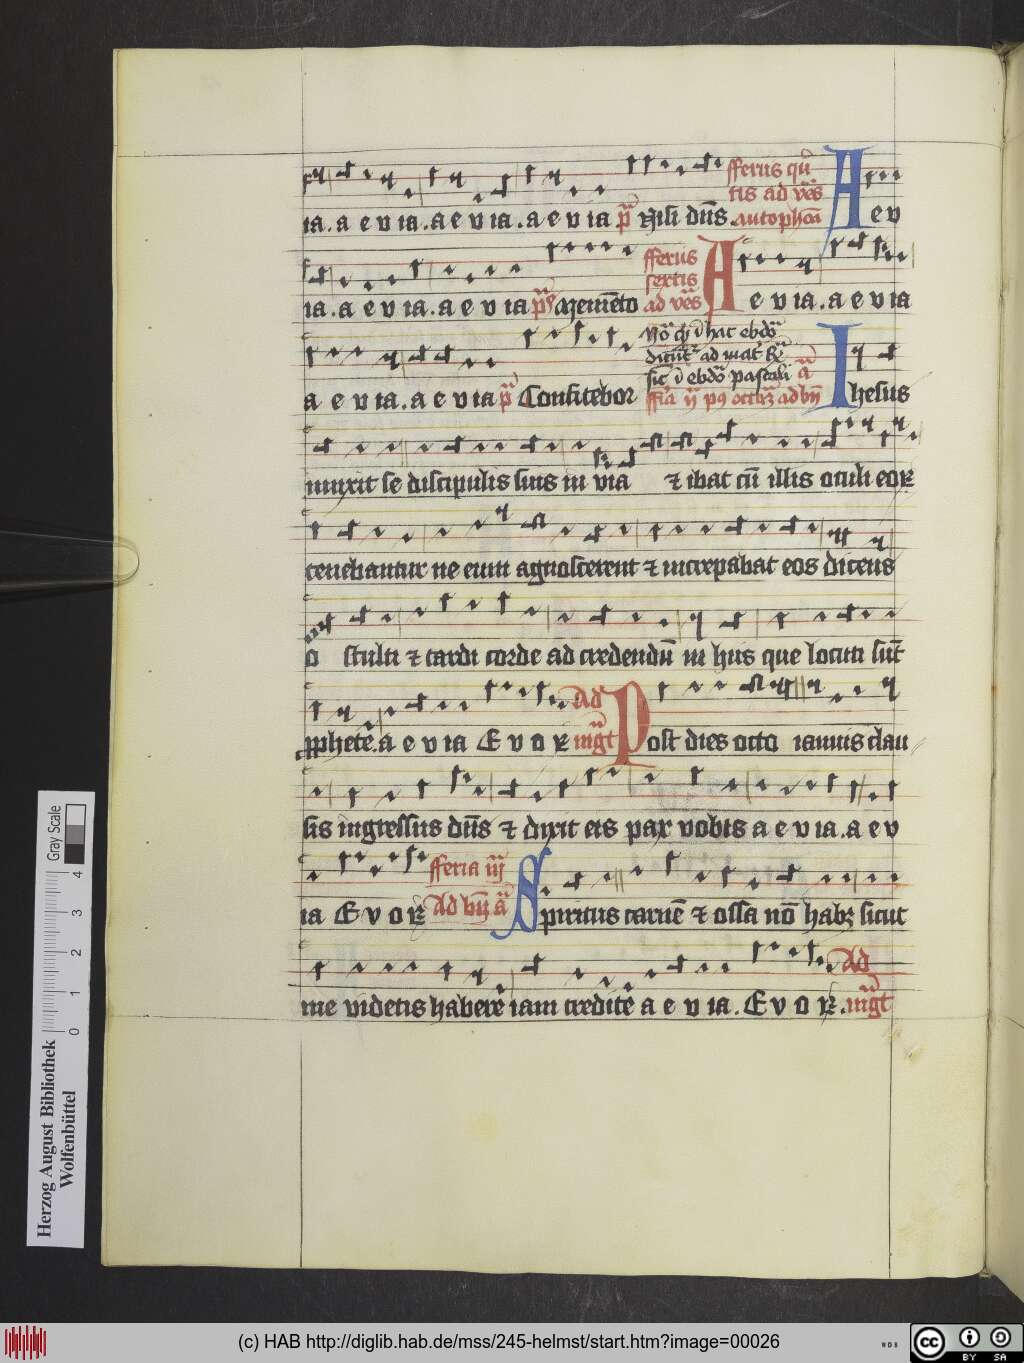 ia. a e v ia. a e v ia. a e v ia p̄s Nisi dn̄s. fferiis qͥn
tis ad ve᷎s
antiphōa A e v
ia. a e v ia. a e v ia p̄s Memēto fferiis
sextis
ad ve᷎s A e v ia. a e v ia
a e v ia. a e v ia p̄s Confitebor
sic ī ebdōa pascali ā
Ihesus
iunxit se discipulis suis in via ⁊ ibat cū illis oculi eoꝝ
tenebantur ne eum agnoscerent ⁊ increpabat eos dicens
o stulti ⁊ tardi corde ad credendū in hiis que locuti sūt
ꝓphete. a e v ia E v o ꝝ Ad
mgt̄ Post dies octo ianuis clau
sis ingressus dn̄s ⁊ dixit eis pax vobis a e v ia. a e v
ia E v o ꝝ fferia iij
Ad bn̄ ā Spiritus carnē ⁊ ossa nō habꝫ sicut
me videtis habere iam credite a e v ia. E v o ꝝ. Ad
mgt̄
Herzog August Bibliothek
Wolfenbüttel
Gray Scale
0 1 2 3 4
(c) HAB http://diglib.hab.de/mss/245-helmst/start.htm?image=00026
WDB
cc BY SA